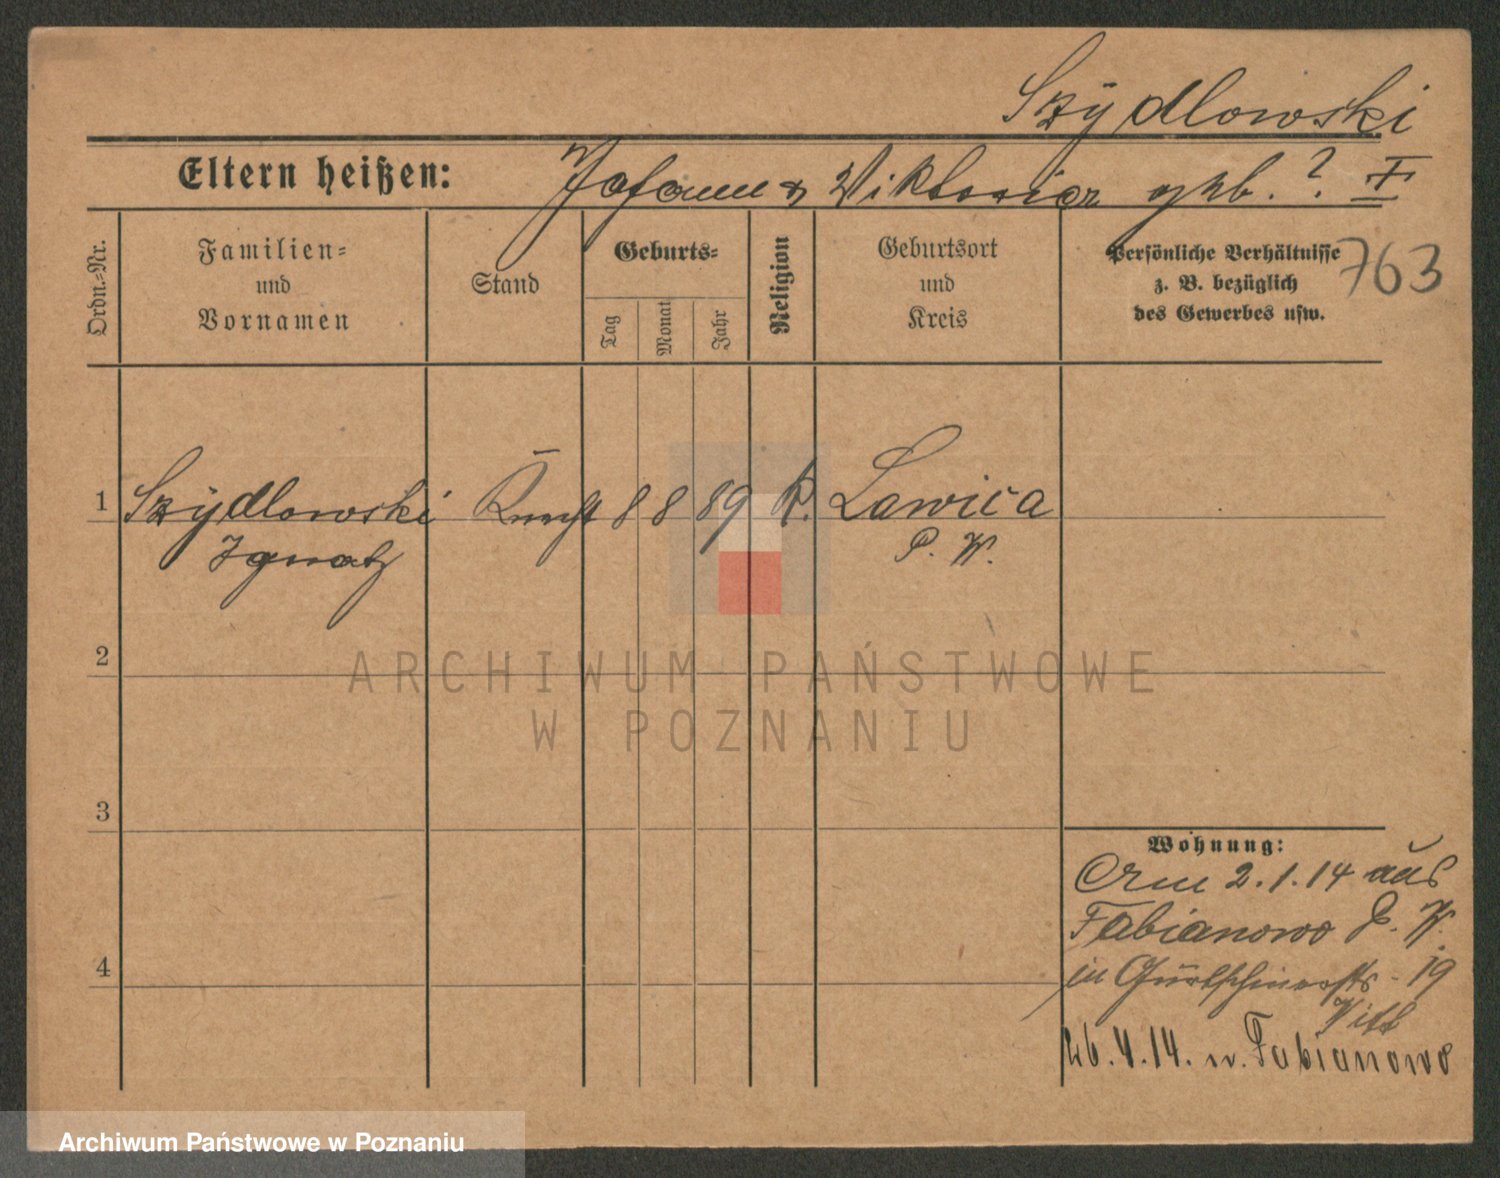 Szÿdlowski
Eltern heißen: Johann & Viktoria geb. ? I
Ordn.=Nr.
Familien=
und
Vornamen
Stand
Geburts=
Tag
Monat
Jahr
Religion
Geburtsort
und
Kreis
Persönliche Verhältnisse
z. B. bezüglich
des Gewerbes usw.
763
1 Szÿdlowski Knecht 8 8 89 K. Lawica
Ignatz P. W.
2
3
4
Wohnung:
Am 2.1.14 aus
Fabianowo P. W.
in Gurtschinerstr. 19
26.4.14. n. Fabianowo
ARCHIWUM PAŃSTWOWE
W POZNANIU
Archiwum Państwowe w Poznaniu